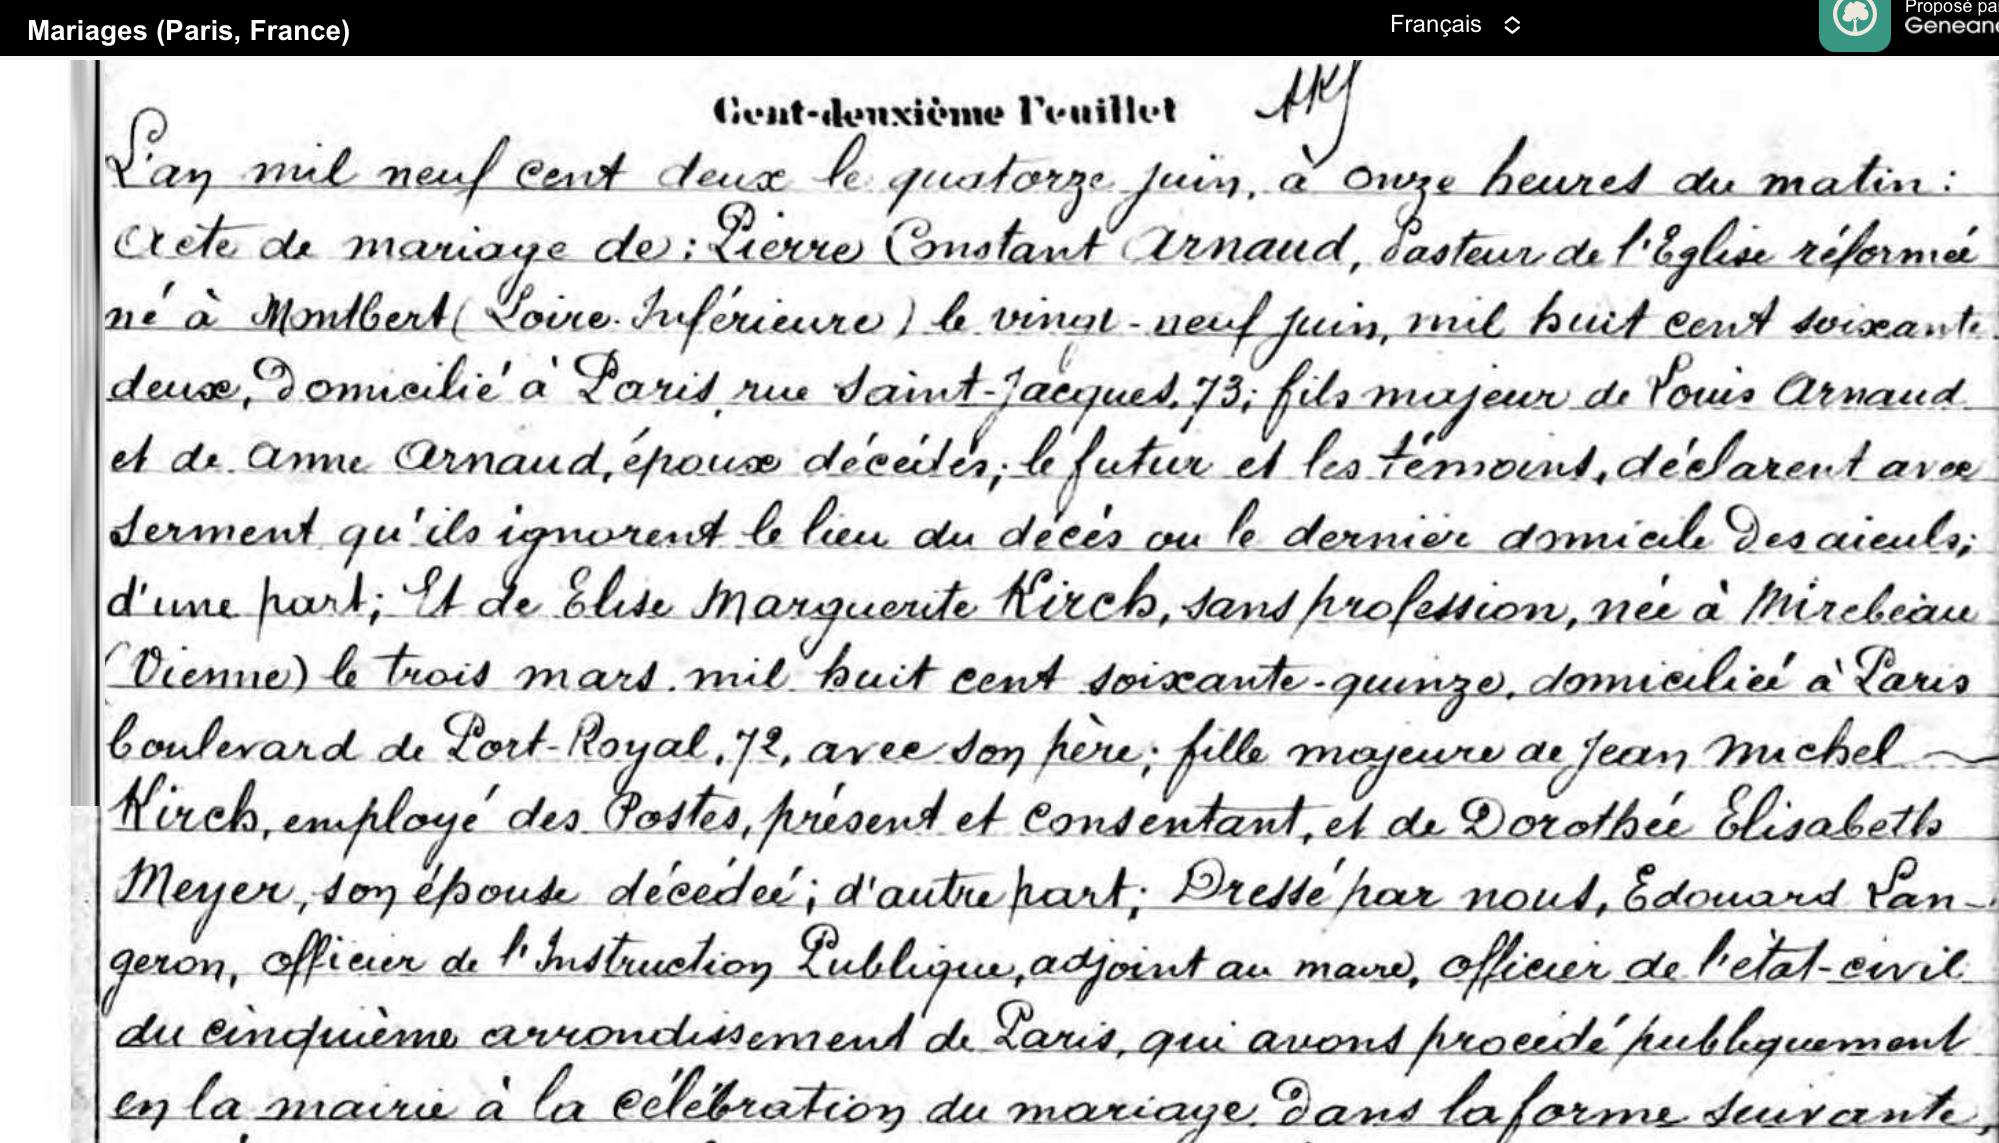 Mariages (Paris, France)
Français
Proposé pa
Geneane
Cent-deuxième Feuillet
L'an mil neuf cent deux le quatorze juin, à onze heures du matin :
Acte de mariage de : Pierre Constant Arnaud, Pasteur de l'Eglise réformée
né à Montbert (Loire-Inférieure) le vingt-neuf juin, mil huit cent soixante
deux, domicilié à Paris, rue Saint-Jacques, 73 ; fils majeur de Louis Arnaud
et de Anne Arnaud, époux décédés ; le futur et les témoins, déclarent avec
serment qu'ils ignorent le lieu du décès ou le dernier domicile des aïeuls ;
d'une part ; Et de Elise Marguerite Kirch, sans profession, née à Mirebeau
(Vienne) le trois mars mil huit cent soixante-quinze, domiciliée à Paris
boulevard de Port-Royal, 72, avec son père ; fille majeure de Jean Michel
Kirch, employé des Postes, présent et consentant, et de Dorothée Elisabeth
Meyer, son épouse décédée ; d'autre part ; Dressé par nous, Edouard Lan-
geron, officier de l'Instruction Publique, adjoint au maire, officier de l'état-civil
du cinquième arrondissement de Paris, qui avons procédé publiquement
en la mairie à la célébration du mariage dans la forme suivante,